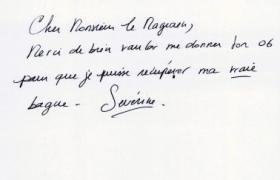 Cher Monsieur le Magicien,
Merci de bien vouloir me donner ton 06
pour que je puisse récupérer ma vraie
bague - Séverine.